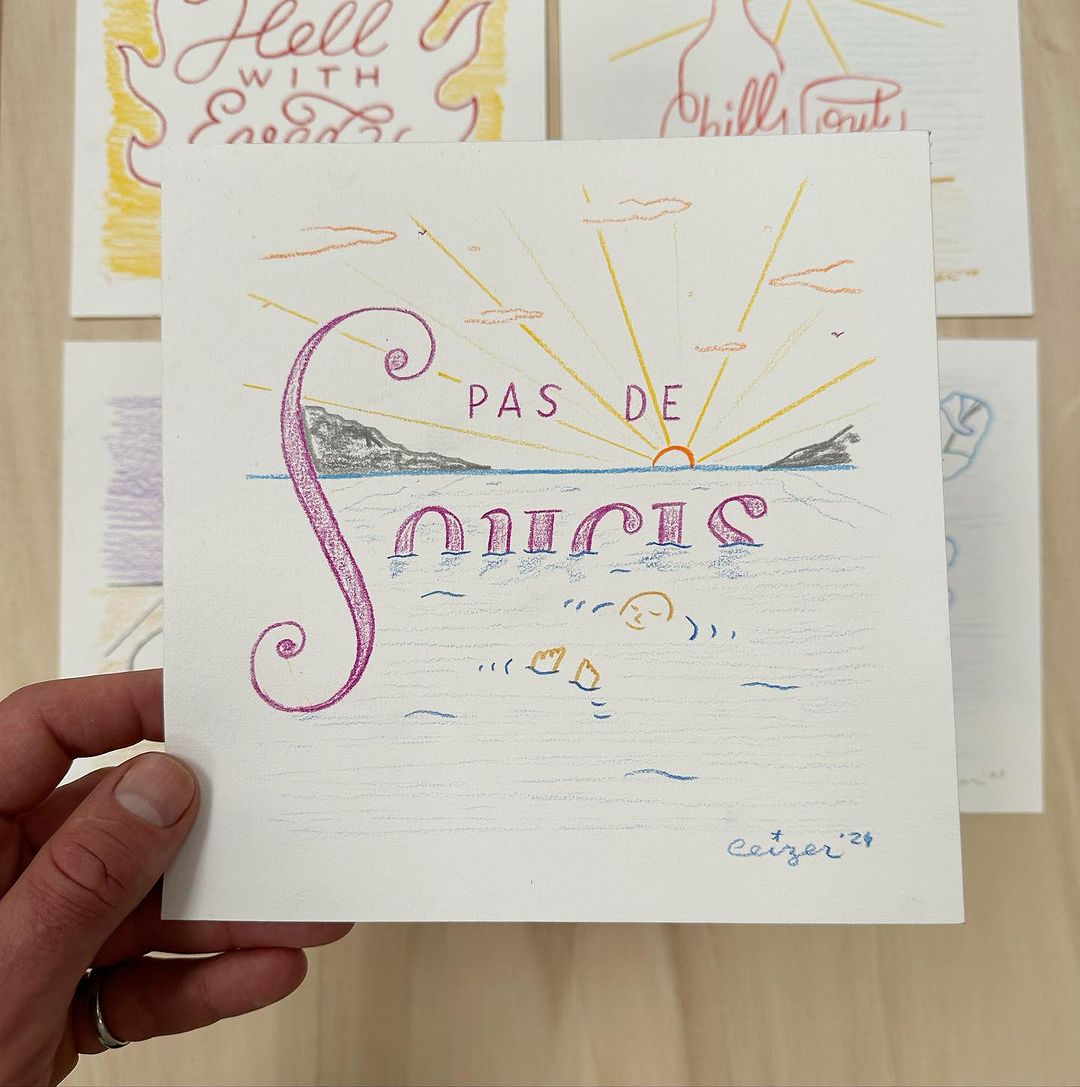 Hell
WITH
Chill Out
PAS DE
Soucis
Ceizer '24